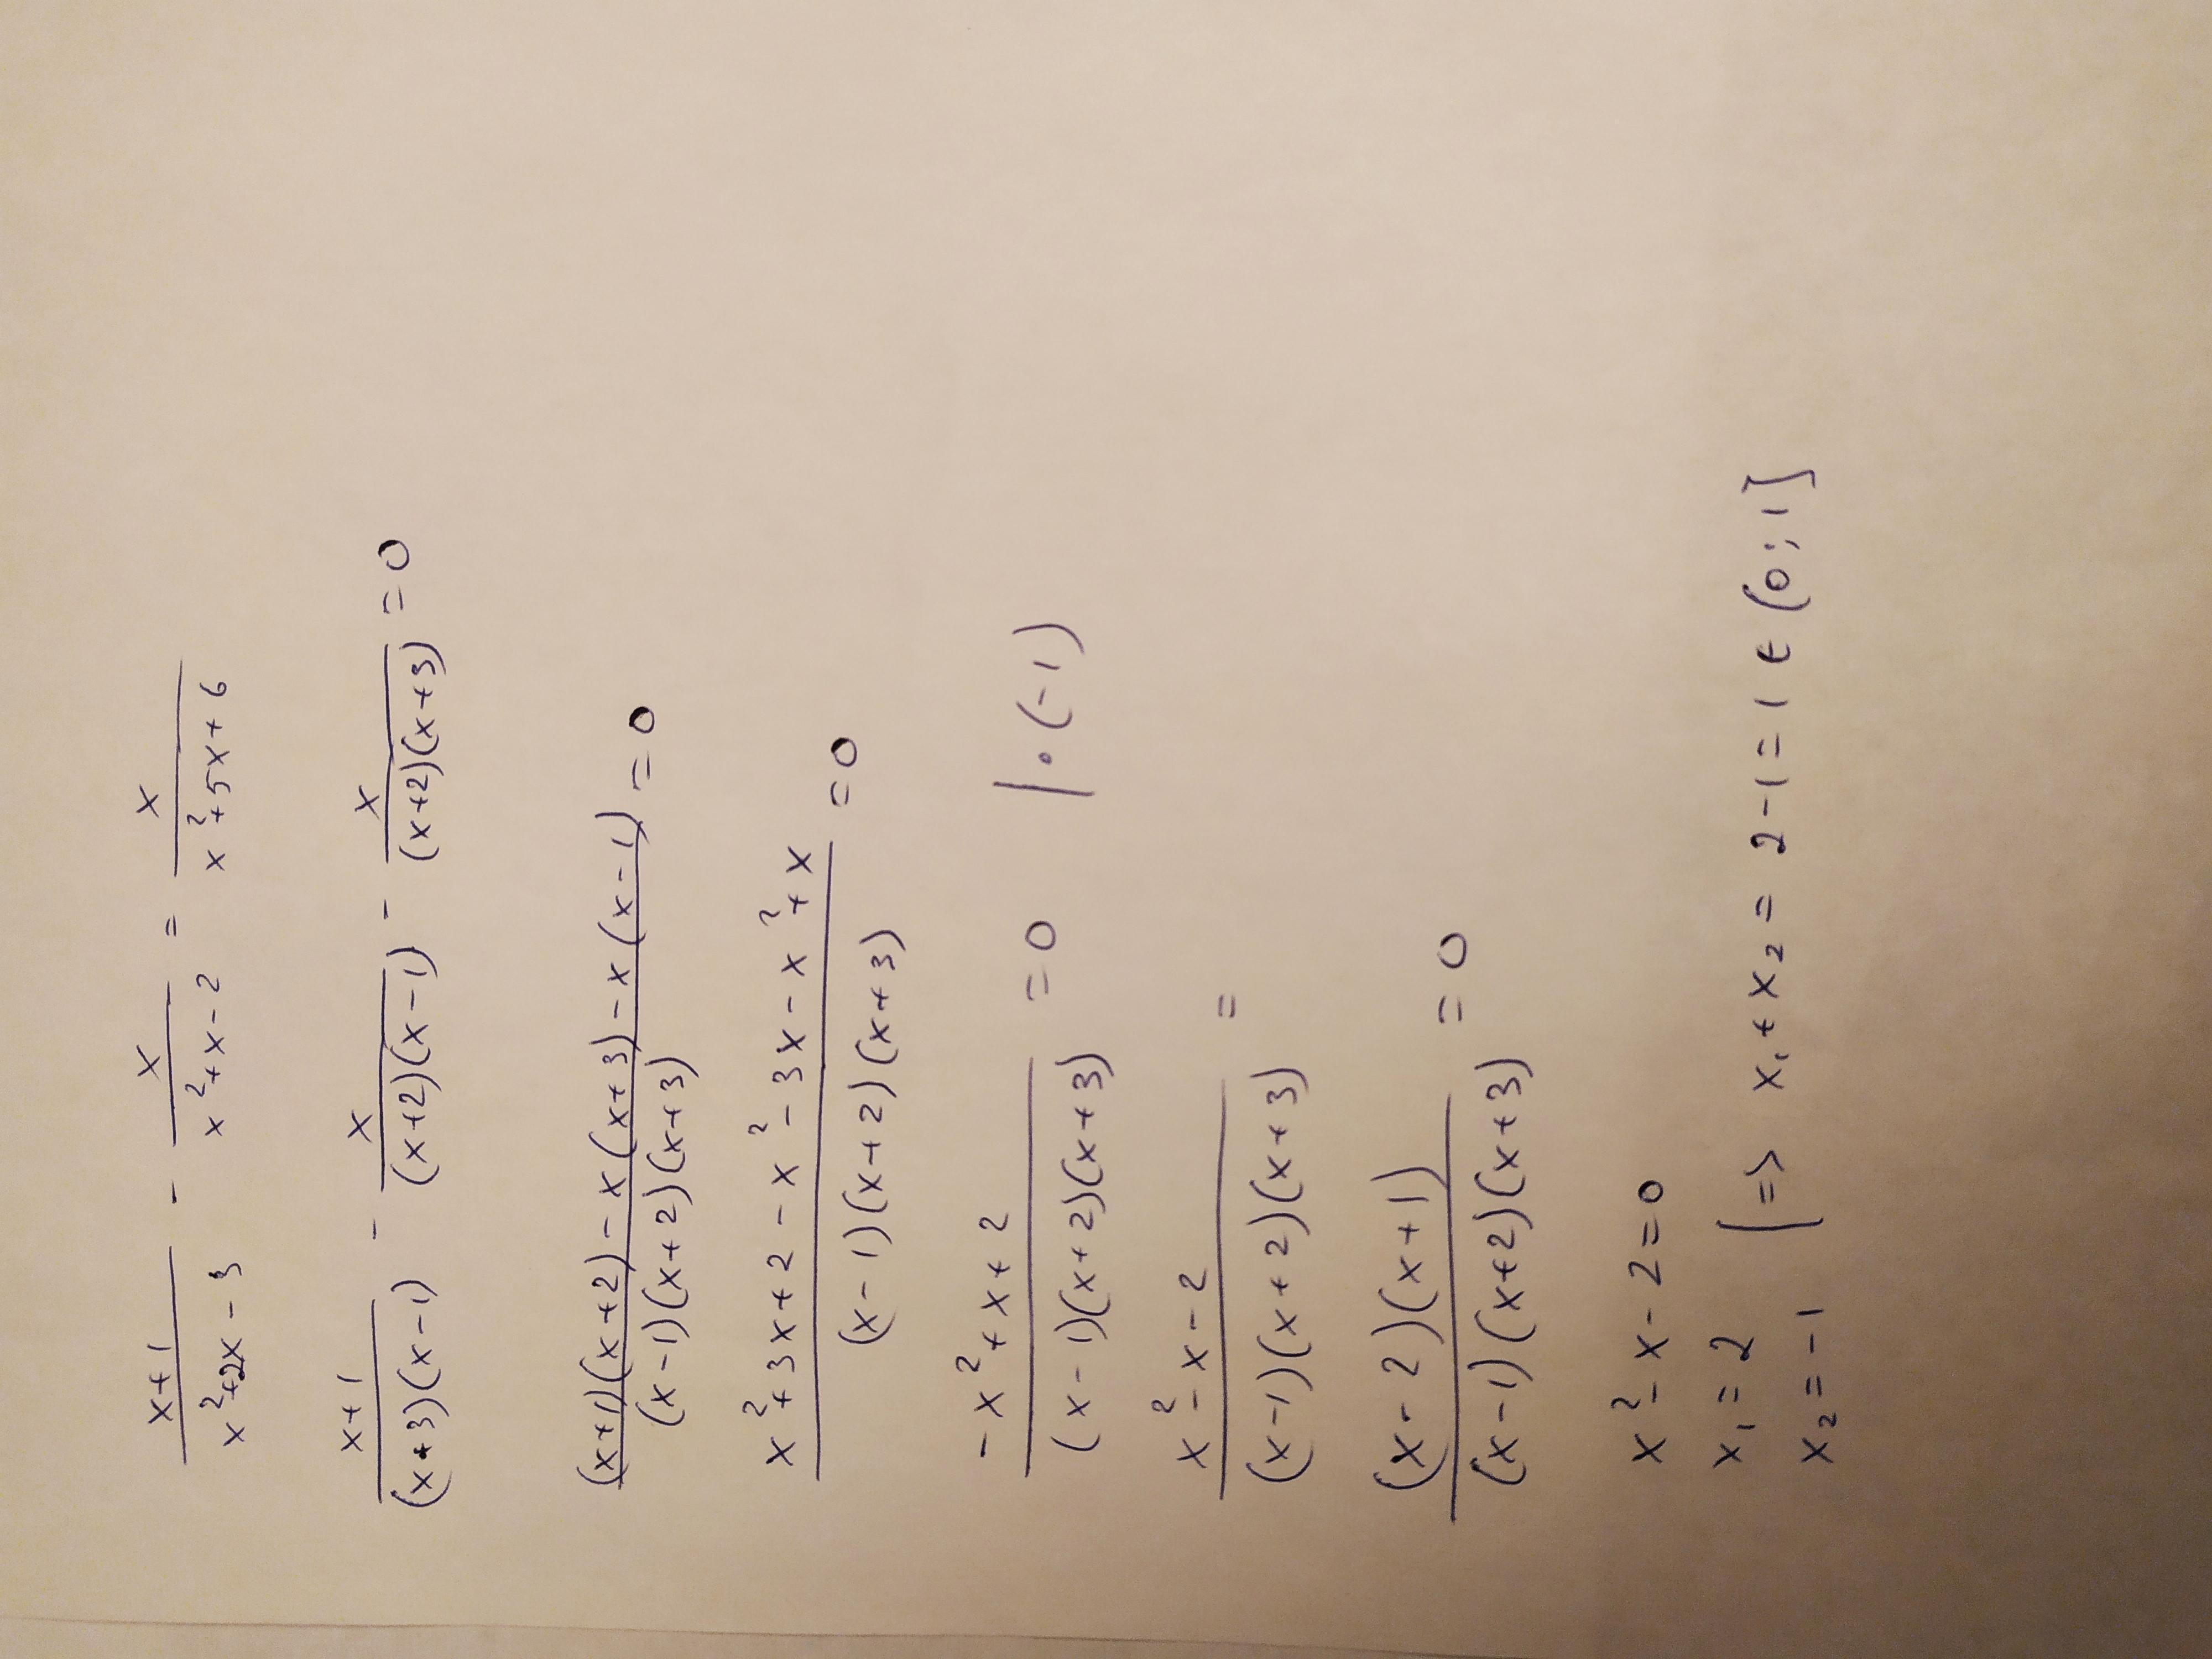 x+1 / x²+2x-3 - x / x²+x-2 = x / x²+5x+6
x+1 / (x+3)(x-1) - x / (x+2)(x-1) - x / (x+2)(x+3) = 0
(x+1)(x+2)-x(x+3)-x(x-1) / (x-1)(x+2)(x+3) = 0
x²+3x+2-x²-3x-x²+x / (x-1)(x+2)(x+3) = 0
-x²+x+2 / (x-1)(x+2)(x+3) = 0 |·(-1)
x²-x-2 / (x-1)(x+2)(x+3) =
(x-2)(x+1) / (x-1)(x+2)(x+3) = 0
x²-x-2=0
x₁=2
x₂=-1 => x₁+x₂=2-1=1 ∈ (0;1]